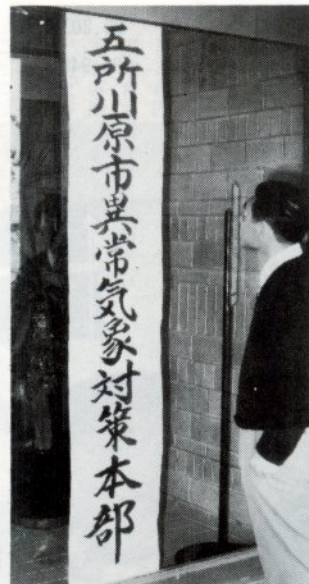 五所川原市異常気象対策本部